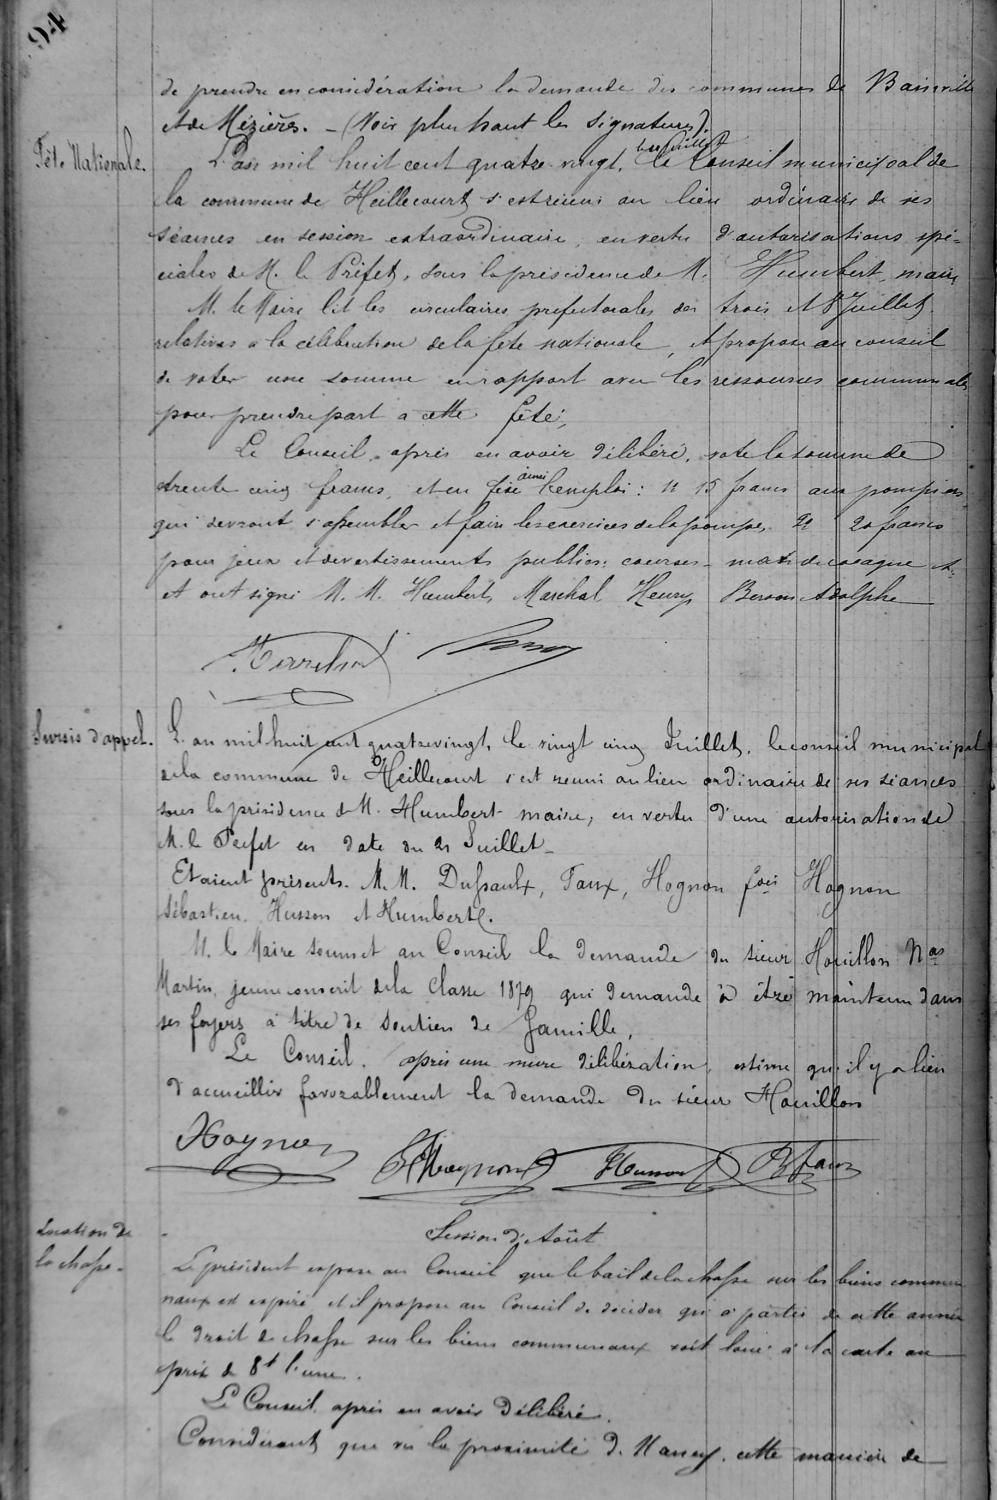 94
de prendre en considération la demande des communes de Bainville
et de Mézières. — (Voir plus haut les signatures).
Fête Nationale.
L'an mil huit cent quatre vingt, le huit juillet Conseil municipal de
la commune de Heillecourt s'est réuni au lieu ordinaire de ses
séances en session extraordinaire, en vertu d'autorisations spé-
ciales de M. le Préfet, sous la présidence de M. Humbert, maire
M. le Maire lit les circulaires préfectorales des trois et 8 Juillet
relatives à la célébration de la fête nationale, et propose au conseil
de voter une somme en rapport avec les ressources communales
pour prendre part à cette fête;
Le Conseil, après en avoir délibéré, vote la somme de
trente cinq francs, et en fixe ainsi l'emploi: 1° 15 francs aux pompiers
qui devront s'assembler et faire les exercices de la pompe, 2° 20 francs
pour jeux et divertissements publics: courses - mats de cocagne &
et ont signé M. M. Humbert, Maréchal, Henry, Berson Adolphe
Sursis d'appel.
L'an mil huit cent quatre vingt, le vingt cinq Juillet, le conseil municipal
de la commune de Heillecourt s'est réuni au lieu ordinaire de ses séances
sous la présidence de M. Humbert maire, en vertu d'une autorisation de
M. le Préfet en date du 21 Juillet_
Etaient présents. M. M. Dussaulx, Faux, Hognon fçois Hognon
Sébastien, Husson et Humbert.
M. le Maire soumet au Conseil la demande du sieur Houillon Nas
Martin, jeune conscrit de la classe 1879 qui demande à être maintenu dans
ses foyers à titre de soutien de famille,
Le Conseil, après une mure délibération, estime qu'il y a lieu
d'accueillir favorablement la demande du sieur Houillon
Hognon
Hognon Husson Faux
Location de
la chasse.
Session d'Août
Le président expose au Conseil que le bail de la chasse sur les biens commu
naux est expiré, et il propose au Conseil de décider qu'à partir de cette année
le droit de chasse sur les biens communaux soit loué à la carte au
prix de 8f l'une.
Le Conseil, après en avoir délibéré,
Considérant que vu la proximité de Nancy, cette manière de